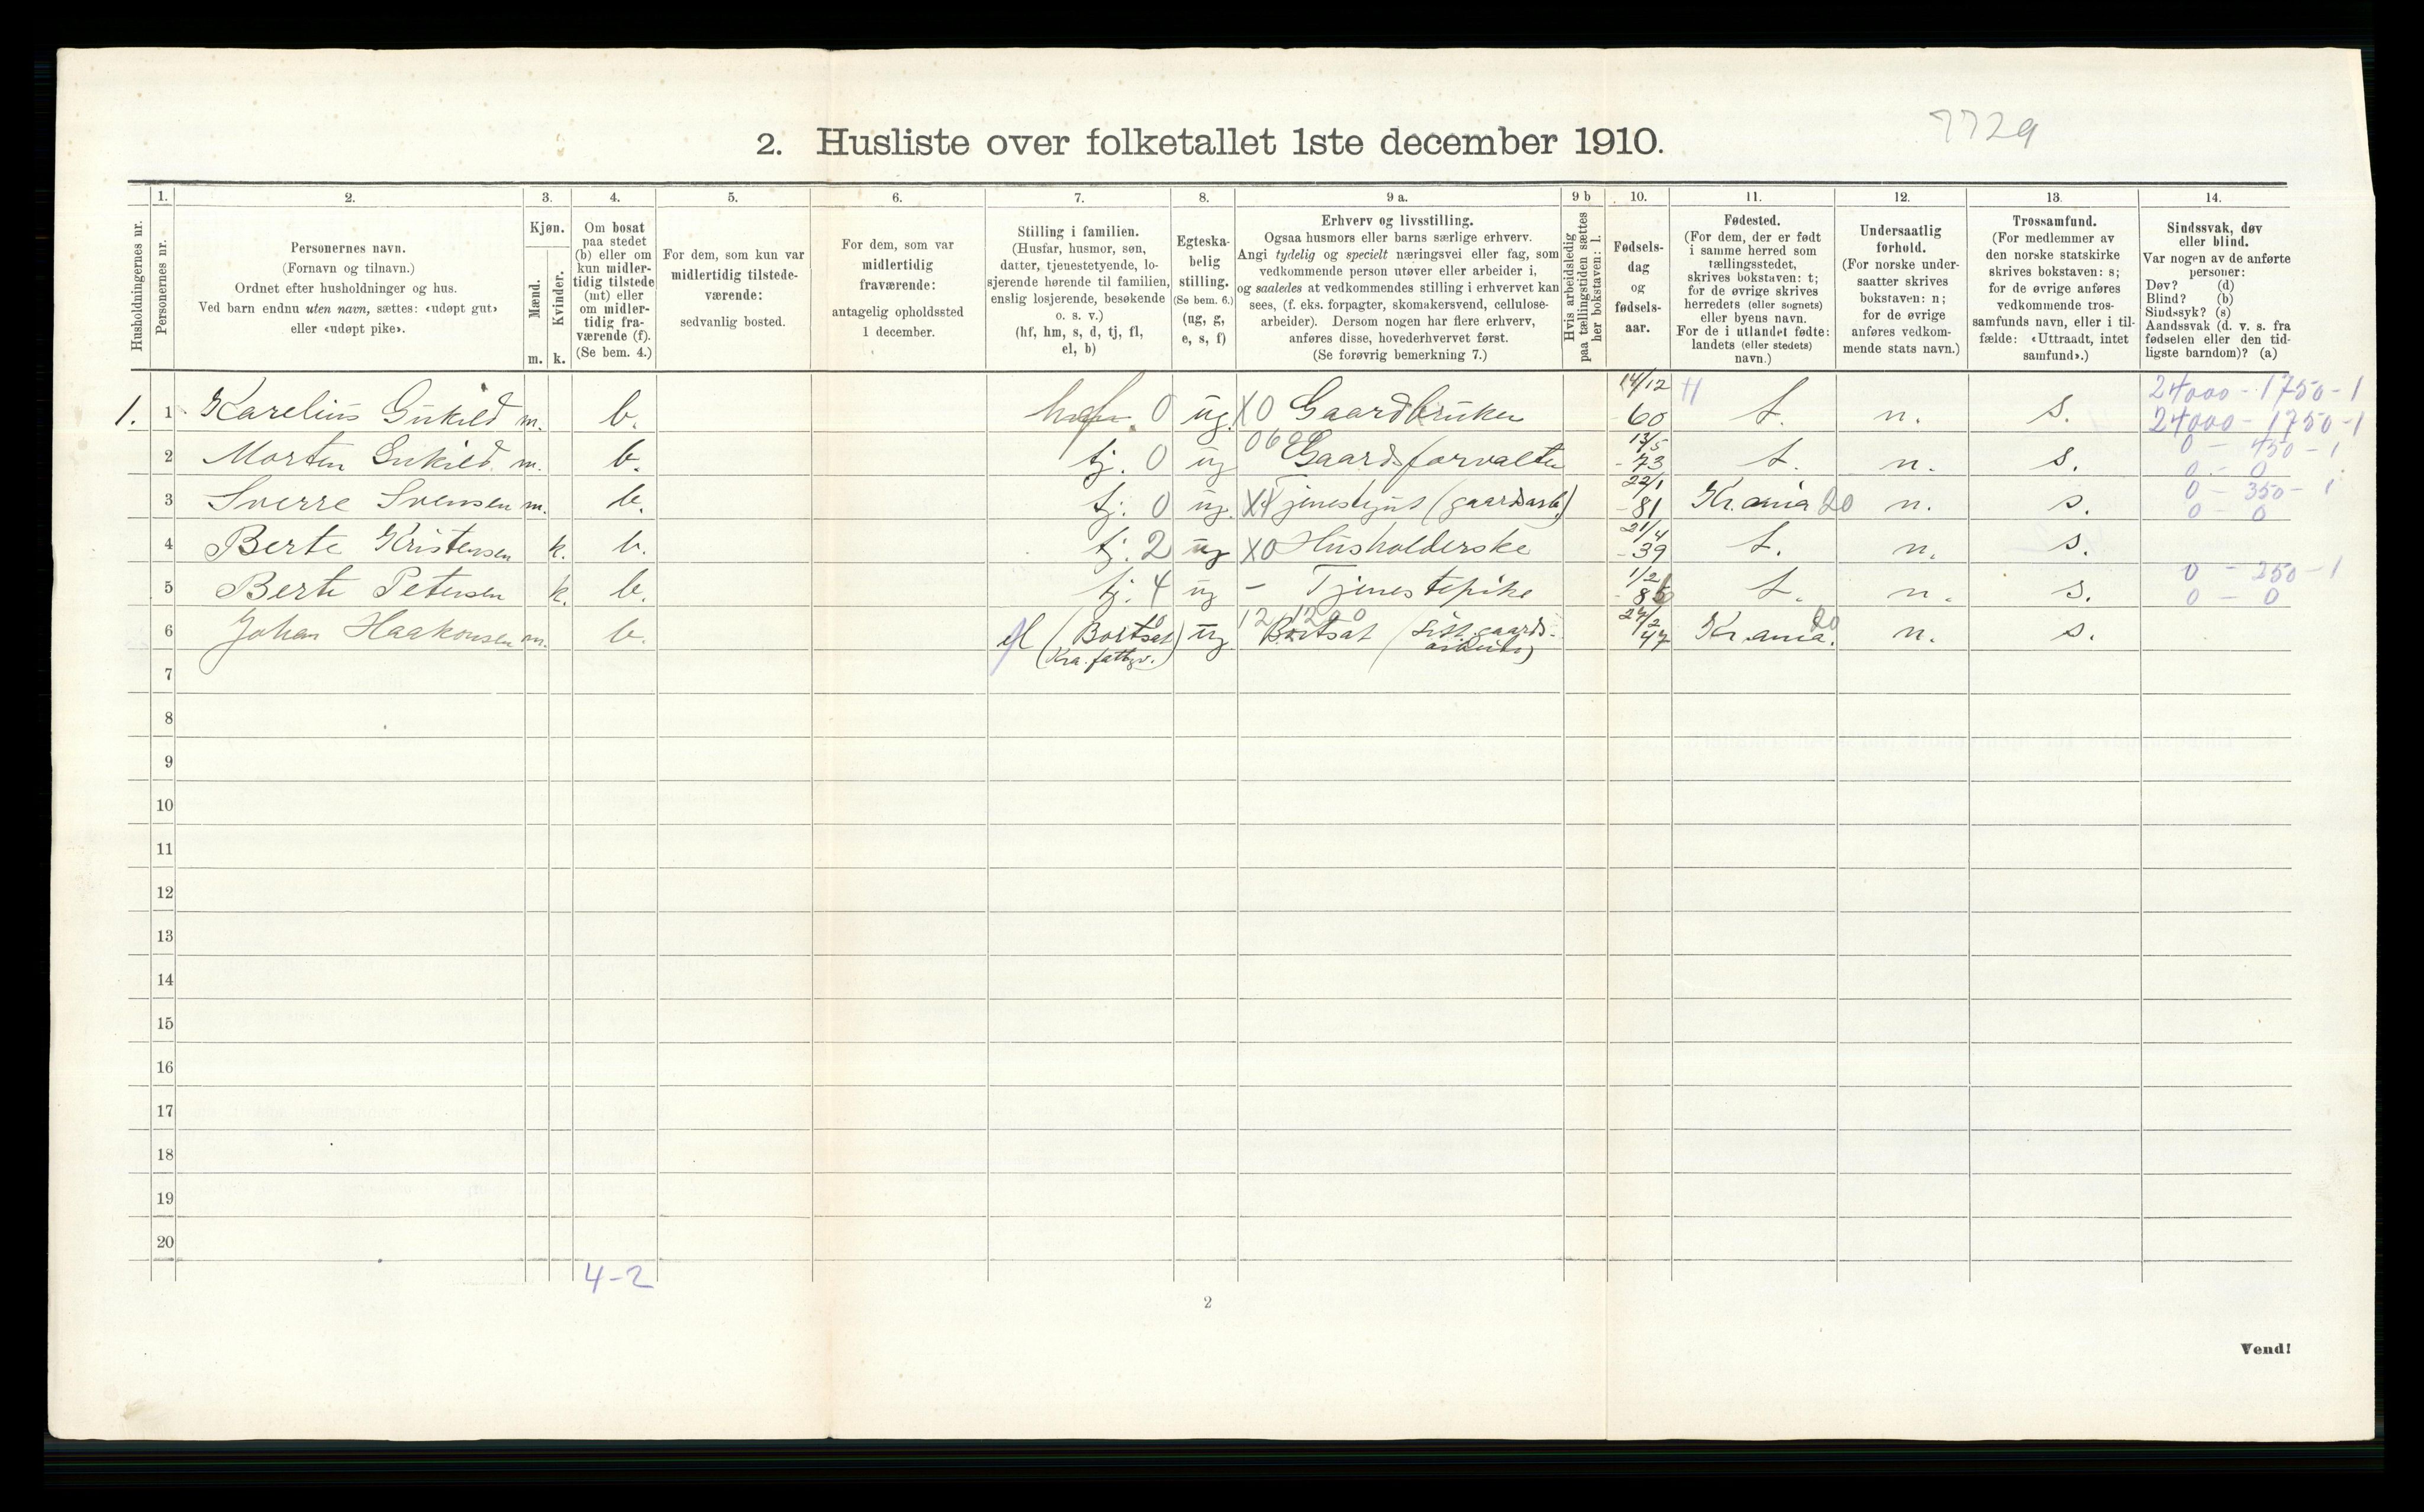 7729
2. Husliste over folketallet 1ste december 1910.
Husholdningernes nr.
1.
Personernes nr.
2.
Personernes navn.
(Fornavn og tilnavn.)
Ordnet efter husholdninger og hus.
Ved barn endnu uten navn, sættes: «udøpt gut»
eller «udøpt pike».
3.
Kjøn.
Mænd.
Kvinder.
m. k.
4.
Om bosat
paa stedet
(b) eller om
kun midler-
tidig tilstede
(mt) eller
om midler-
tidig fra-
værende (f).
(Se bem. 4.)
5.
For dem, som kun var
midlertidig tilstede-
værende:
sedvanlig bosted.
6.
For dem, som var
midlertidig
fraværende:
antagelig opholdssted
1 december.
7.
Stilling i familien.
(Husfar, husmor, søn,
datter, tjenestetyende, lo-
sjerende hørende til familien,
enslig losjerende, besøkende
o. s. v.)
(hf, hm, s, d, tj, fl,
el, b)
8.
Egteska-
belig
stilling.
(Se bem. 6.)
(ug, g,
e, s, f)
9 a.
Erhverv og livsstilling.
Ogsaa husmors eller barns særlige erhverv.
Angi tydelig og specielt næringsvei eller fag, som
vedkommende person utøver eller arbeider i,
og saaledes at vedkommendes stilling i erhvervet kan
sees, (f. eks. forpagter, skomakersvend, cellulose-
arbeider). Dersom nogen har flere erhverv,
anføres disse, hovederhvervet først.
(Se forøvrig bemerkning 7.)
9 b
Hvis arbeidsledig
paa tællingstiden sættes
her bokstaven: l.
10.
Fødsels-
dag
og
fødsels-
aar.
11.
Fødested.
(For dem, der er født
i samme herred som
tællingsstedet,
skrives bokstaven: t;
for de øvrige skrives
herredets (eller sognets)
eller byens navn.
For de i utlandet fødte:
landets (eller stedets)
navn.)
12.
Undersaatlig
forhold.
(For norske under-
saatter skrives
bokstaven: n;
for de øvrige
anføres vedkom-
mende stats navn.)
13.
Trossamfund.
(For medlemmer av
den norske statskirke
skrives bokstaven: s;
for de øvrige anføres
vedkommende tros-
samfunds navn, eller i til-
fælde: «Uttraadt, intet
samfund».)
14.
Sindssvak, døv
eller blind.
Var nogen av de anførte
personer:
Døv? (d)
Blind? (b)
Sindssyk? (s)
Aandssvak (d. v. s. fra
fødselen eller den tid-
ligste barndom)? (a)
1. 1 Karelius Gukild m. b. 0 ug. X0 Gaardbruker 14/12 60 t. n. s. 24000 - 1750 - 1
24000 - 1750 - 1
2 Morten Gukild m. b. tj. 0 ug Gaardsforvalter 13/5 - 73 t. n. s. 0 - 450 - 1
0 - 0
3 Sverre Svensen m. b. tj. 0 ug. Tjenestegut (gaardsarb.) 22/1 - 81 Kr.ania 20 n. s. 0 - 350 - 1
0 - 0
4 Berte Kristensen k. b. tj. 2 ug X0 Husholderske 21/4 - 39 t. n. s.
5 Berte Petersen k. b. tj. 4 ug - Tjenestepike 1/2 t. n. s. 0 - 250 - 1
0 - 0
6 Johan Haakonsen m. b. el (Bortsat) ug Bortsat 24/2 47 Kr.ania. 20 n. s.
(Kra. fattigv.)
7
8
9
10
11
12
13
14
15
16
17
18
19
20
4-2
2
Vend!